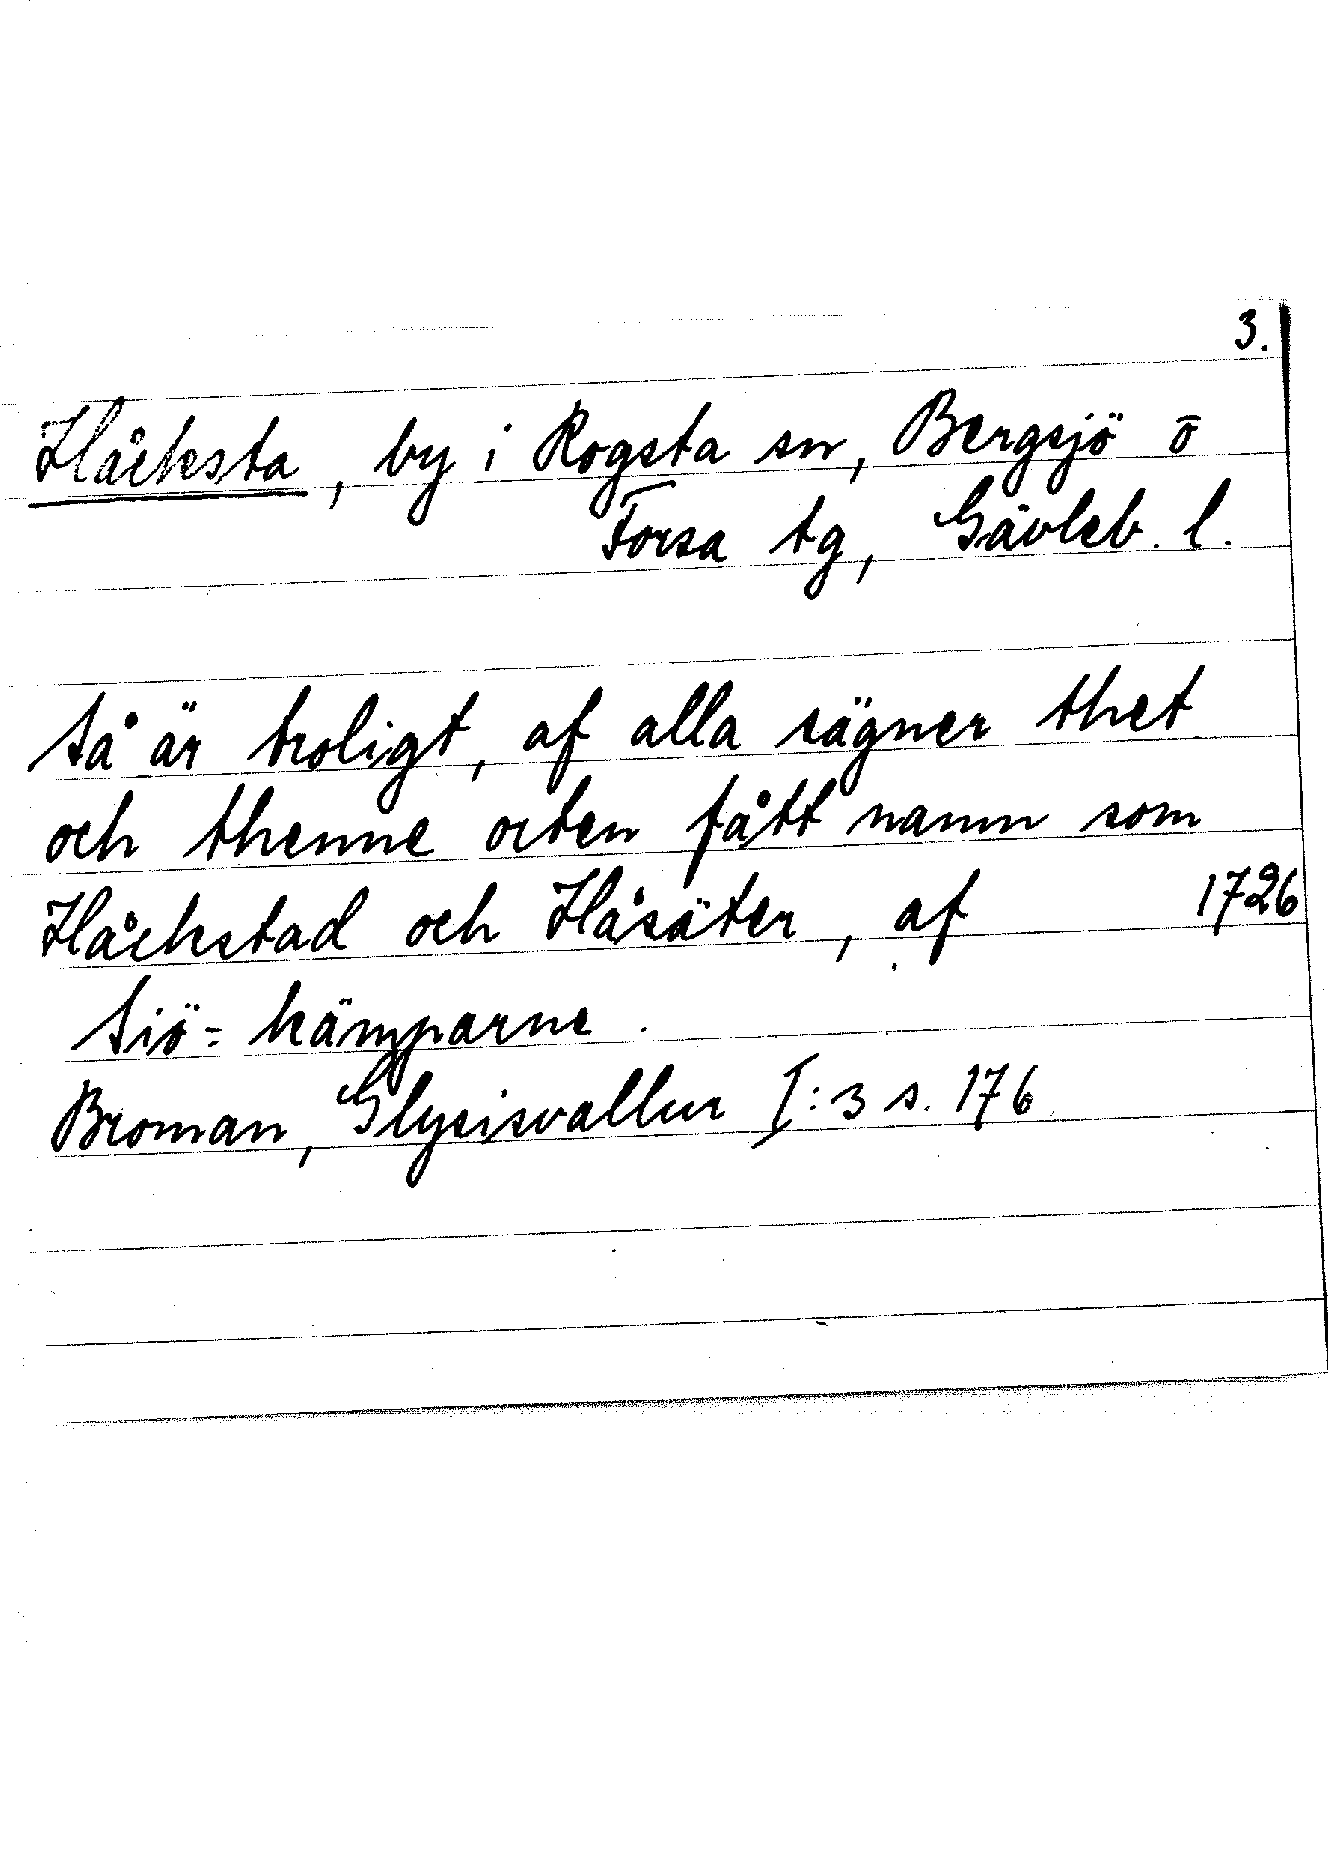 3.
Håcksta, by i Rogsta sn, Bergsjö o
Forsa tg, Gävleb. l.
Så är troligt, af alla sägner thet
och thenne orten fått namn som
Håckstad och Håsäter, af 1726
Siö= kämparne.
Broman, Glysisvallur I:3 s. 176